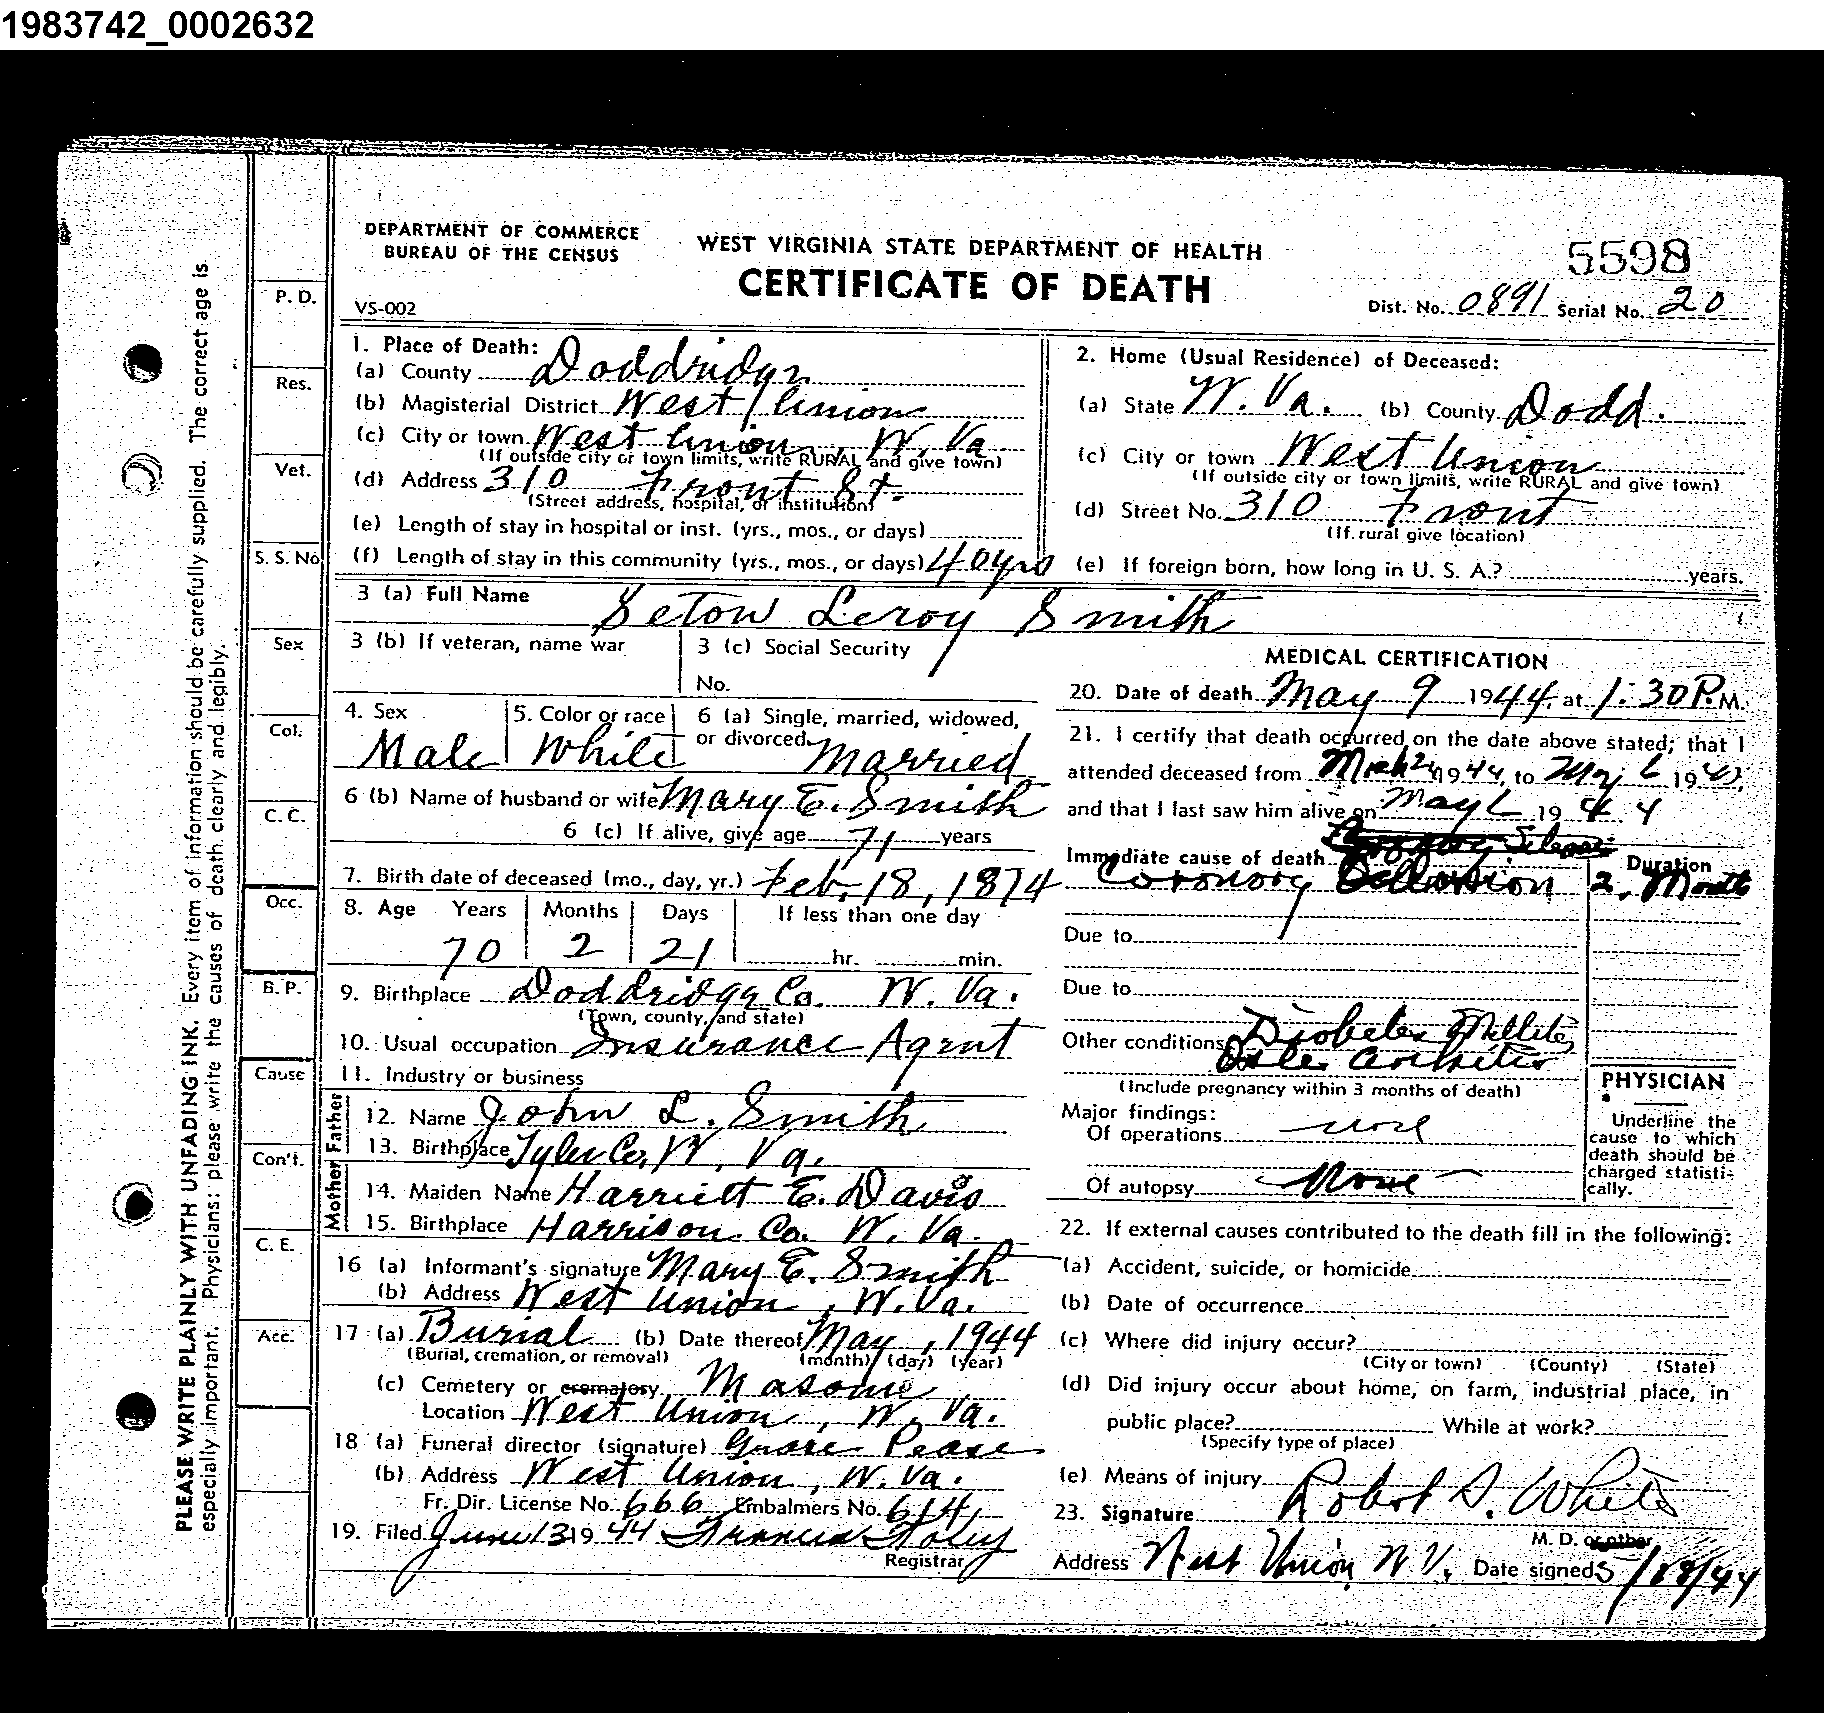 1983742_0002632
DEPARTMENT OF COMMERCE
BUREAU OF THE CENSUS
WEST VIRGINIA STATE DEPARTMENT OF HEALTH
CERTIFICATE OF DEATH
5598
VS-002
Dist. No. 0891 Serial No. 20
PLEASE WRITE PLAINLY WITH UNFADING INK. Every item of information should be carefully supplied. The correct age is
especially important. Physicians: please write the causes of death clearly and legibly.
P. D.
Res.
Vet.
S. S. No
Sex
Col.
C. C.
Occ.
B. P.
Cause
Con't.
C. E.
Acc.
1. Place of Death:
(a) County Doddridge
(b) Magisterial District West Union
(c) City or town West Union, W. Va
(If outside city or town limits, write RURAL and give town)
(d) Address 310 Front St.
(Street address, hospital, or institution)
(e) Length of stay in hospital or inst. (yrs., mos., or days)
(f) Length of stay in this community (yrs., mos., or days) 40 yrs
2. Home (Usual Residence) of Deceased:
(a) State W. Va. (b) County Dodd.
(c) City or town West Union
(If outside city or town limits, write RURAL and give town)
(d) Street No. 310 Front
(If rural give location)
(e) If foreign born, how long in U. S. A.? years.
3 (a) Full Name Seton Leroy Smith
3 (b) If veteran, name war
3 (c) Social Security
No.
4. Sex
Male
5. Color or race
White
6 (a) Single, married, widowed,
or divorced Married
6 (b) Name of husband or wife Mary E. Smith
6 (c) If alive, give age 71 years
7. Birth date of deceased (mo., day, yr.) Feb. 18, 1874
8. Age Years Months Days If less than one day
70 2 21 hr. min.
9. Birthplace Doddridge Co. W. Va.
(Town, county, and state)
10. Usual occupation Insurance Agent
11. Industry or business
Father
12. Name John L. Smith
13. Birthplace Tyler Co, W. Va.
Mother
14. Maiden Name Harriett E. Davis
15. Birthplace Harrison Co. W. Va.
16 (a) Informant's signature Mary E. Smith
(b) Address West Union, W. Va.
17 (a) Burial (b) Date thereof May, 1944
(Burial, cremation, or removal) (month) (day) (year)
(c) Cemetery or crematory Masonic
Location West Union, W. Va.
18 (a) Funeral director (signature) Pease
(b) Address West Union, W. Va.
Fr. Dir. License No. 666 Embalmers No. 614
19. Filed June 13 1944 Francis Foley
Registrar
MEDICAL CERTIFICATION
20. Date of death May 9 1944 at 1:30 P. M.
21. I certify that death occurred on the date above stated; that I
attended deceased from 1944, to 19
and that I last saw him alive on May 1944
Immediate cause of death
Coronary Occlusion
Duration
2 Months
Due to
Due to
Other conditions Diabetes Mellitus
(Include pregnancy within 3 months of death)
Major findings:
Of operations none
Of autopsy None
PHYSICIAN
Underline the
cause to which
death should be
charged statisti-
cally.
22. If external causes contributed to the death fill in the following:
(a) Accident, suicide, or homicide
(b) Date of occurrence
(c) Where did injury occur?
(City or town) (County) (State)
(d) Did injury occur about home, on farm, industrial place, in
public place? While at work?
(Specify type of place)
(e) Means of injury
23. Signature Robert S. White
M. D. or other
Address West Union, W V. Date signed